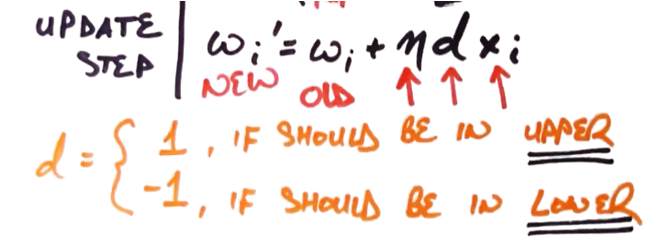 UPDATE STEP | ωi' = ωi + η d xi
NEW OLD ↑ ↑ ↑
d = { 1, IF SHOULD BE IN UPPER
-1, IF SHOULD BE IN LOWER